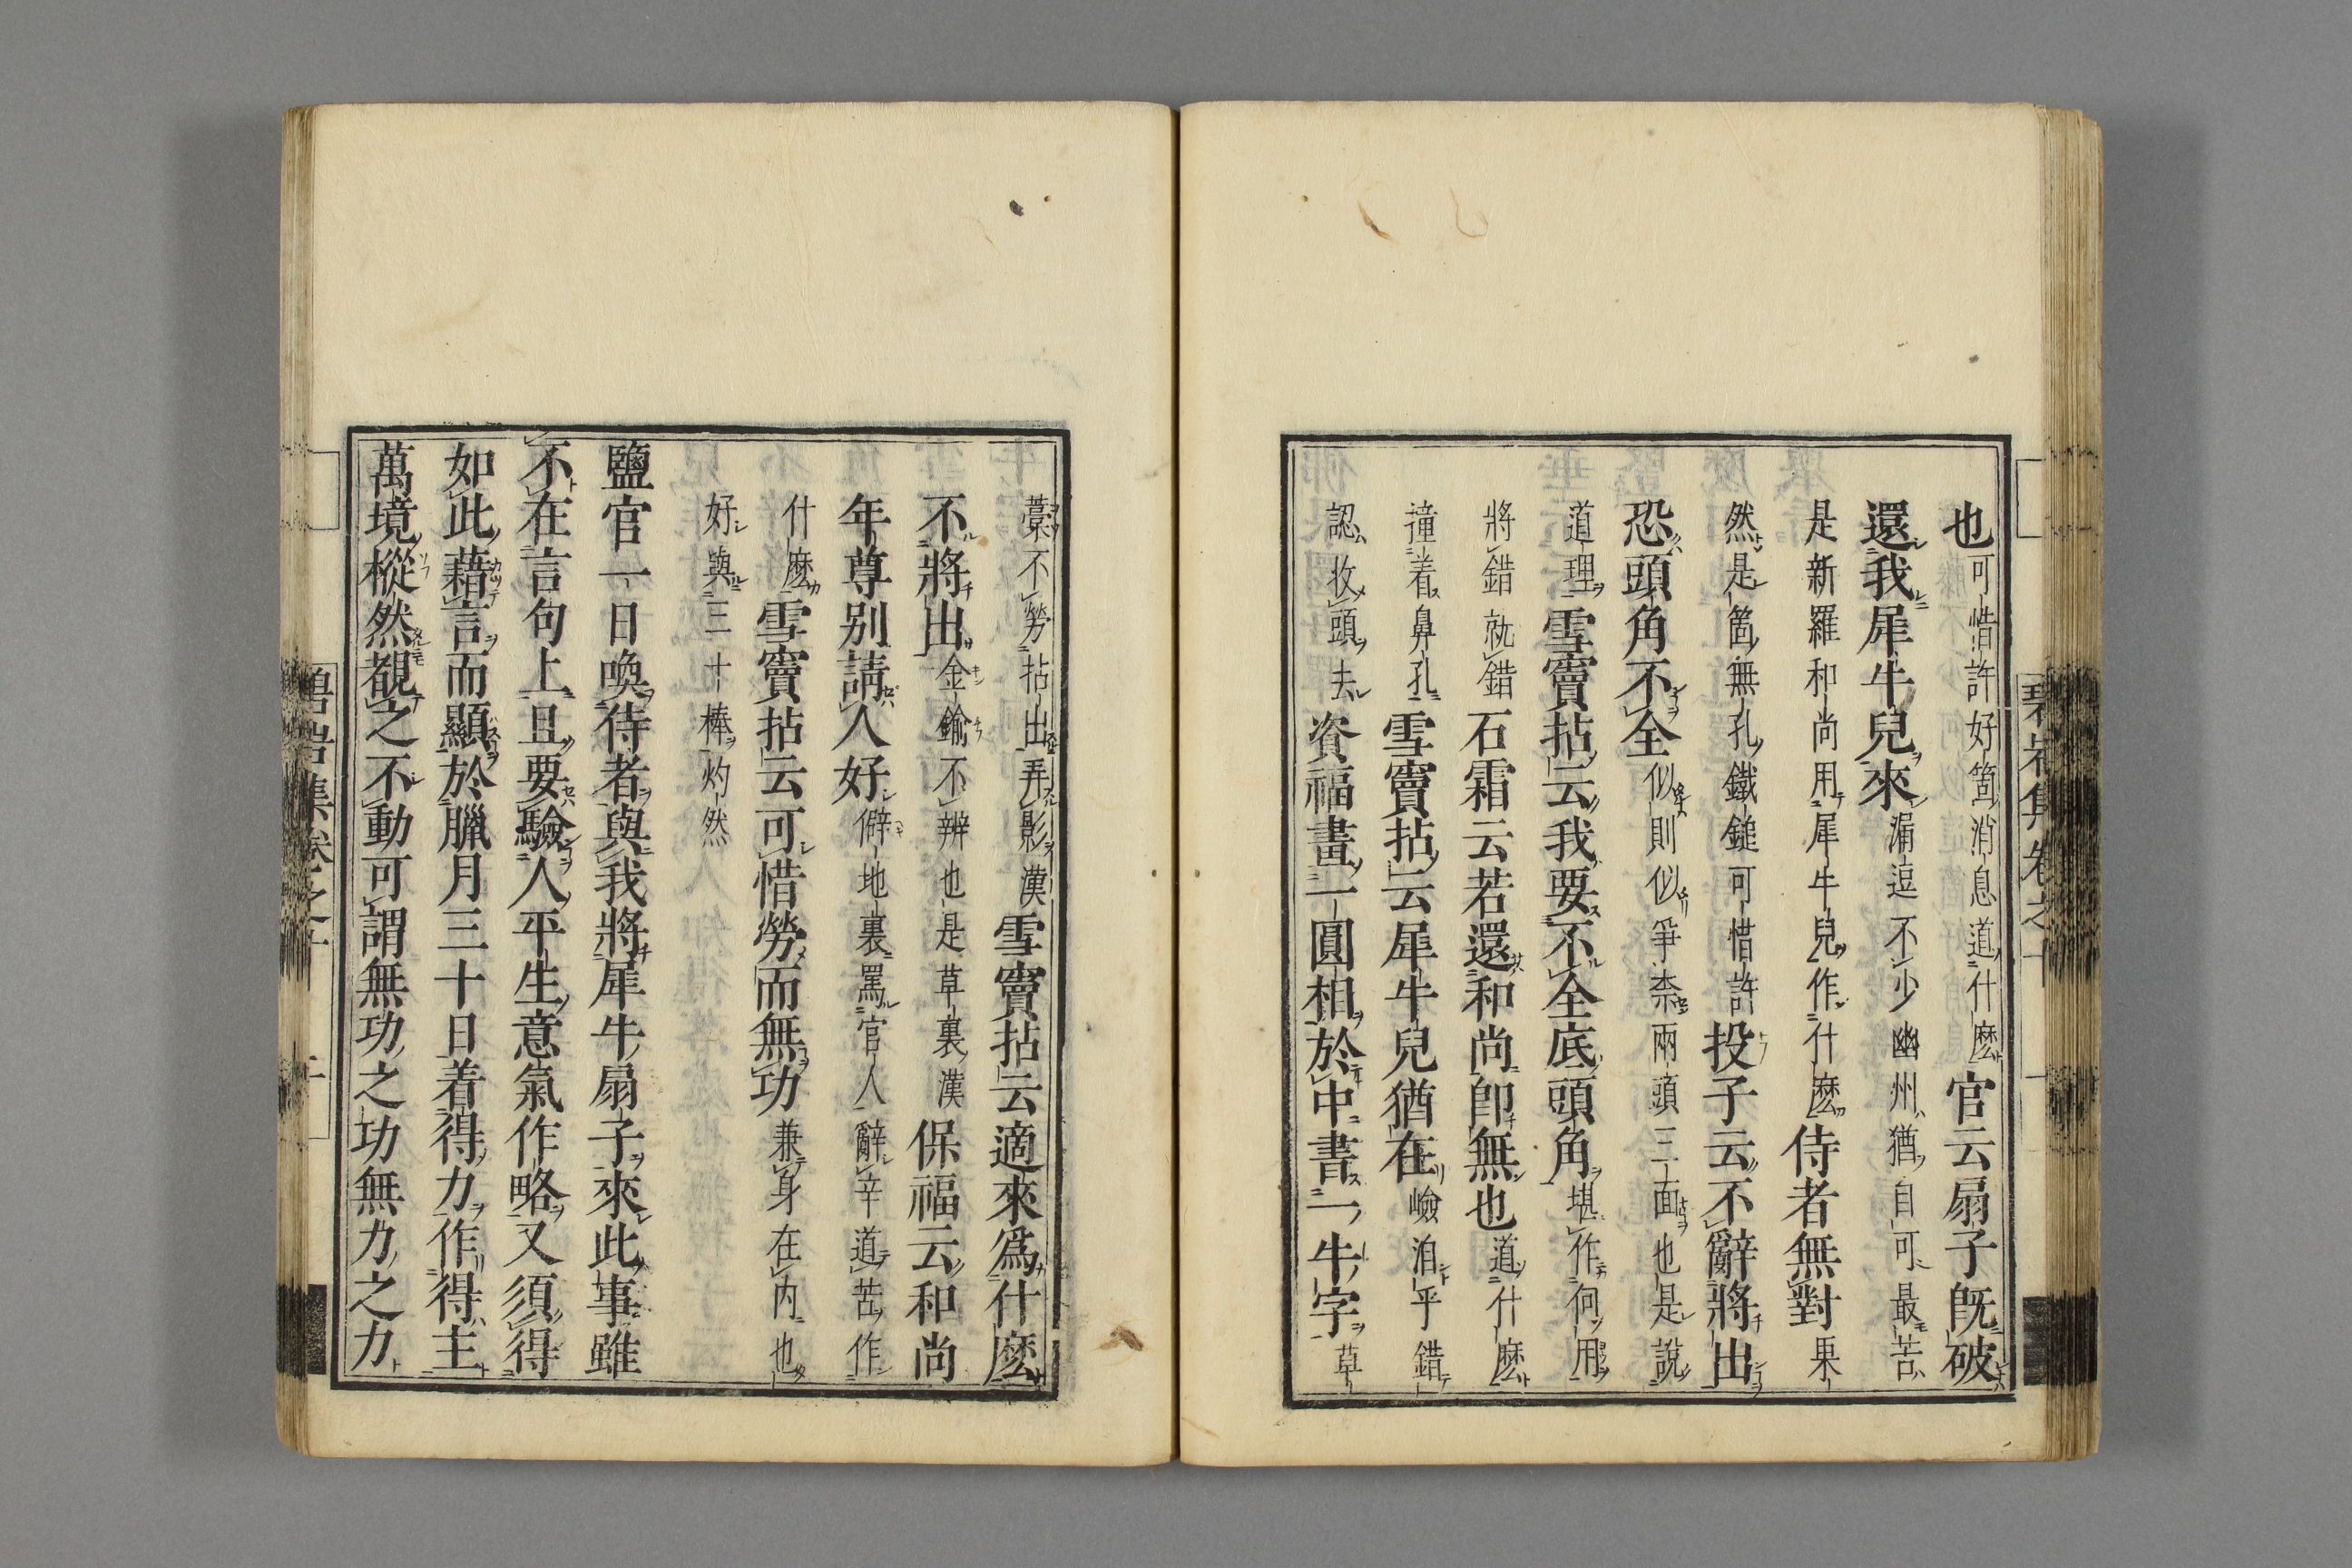 也可惜許好箇消息道什麽官云扇子既破
還我犀牛兒來漏逗不少幽州猶自可最苦
是新羅和尚用犀牛兒作什麽侍者無對果
然是箇無孔鐵鎚可惜許投子云不辭將出
恐頭角不全似則似爭柰兩頭三面也是說
道理雪竇拈云我要不全底頭角堪作何用
將錯就錯石霜云若還和尚即無也道什麽
撞着鼻孔雪竇拈云犀牛兒猶在嶮洎乎錯
認收頭去資福畫一圓相於中書一牛字草
藁不勞拈出弄影漢雪竇拈云適來爲什麽
不將出金鍮不辨也是草裏漢保福云和尚
年尊別請人好僻地裏罵官人辭辛道苦作
什麽雪竇拈云可惜勞而無功兼身在內也
好與三十棒灼然
鹽官一日喚侍者與我將犀牛扇子來此事雖
不在言句上且要驗人平生意氣作略又須得
如此藉言而顯於臘月三十日着得力作得主
萬境樅然覩之不動可謂無功之功無力之力